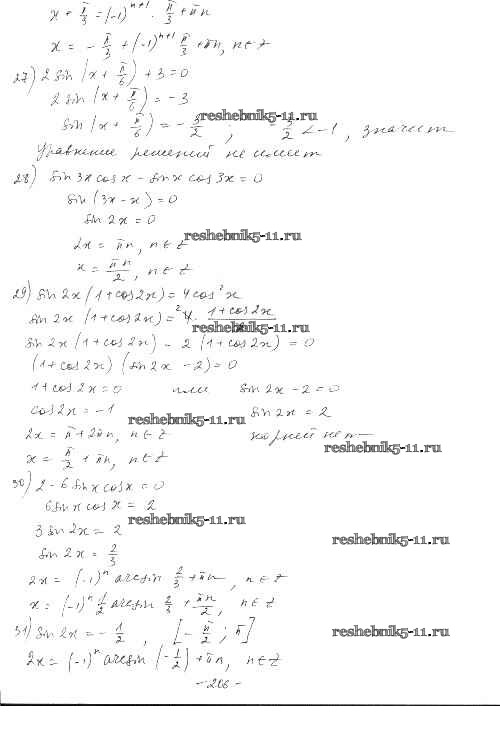 x + π/3 = (-1)^(n+1) · π/3 + πn
x = - π/3 + (-1)^(n+1) π/3 + πn, n ∈ Z
27) 2 sin (x + π/6) + 3 = 0
2 sin (x + π/6) = -3
reshebnik5-11.ru
sin (x + π/6) = - 3/2 , - 3/2 < -1, значит
уравнение решений не имеет
28) sin 3x cos x - sin x cos 3x = 0
sin (3x - x) = 0
sin 2x = 0
reshebnik5-11.ru
2x = πn, n ∈ Z
x = πn/2, n ∈ Z
29) sin 2x (1 + cos 2x) = 4 cos² x
sin 2x (1 + cos 2x) = ²4 · (1 + cos 2x)/2
reshebnik5-11.ru
sin 2x (1 + cos 2x) - 2 (1 + cos 2x) = 0
(1 + cos 2x) (sin 2x - 2) = 0
1 + cos 2x = 0 или sin 2x - 2 = 0
cos 2x = -1 sin 2x = 2
reshebnik5-11.ru
2x = π + 2πn, n ∈ Z корней нет
reshebnik5-11.ru
x = π/2 + πn, n ∈ Z
30) 2 - 6 sin x cos x = 0
6 sin x cos x = 2
reshebnik5-11.ru
3 sin 2x = 2
reshebnik5-11.ru
sin 2x = 2/3
2x = (-1)^n arcsin 2/3 + πn, n ∈ Z
x = (-1)^n 1/2 arcsin 2/3 + πn/2, n ∈ Z
31) sin 2x = - 1/2 , [- π/2 ; π]
reshebnik5-11.ru
2x = (-1)^n arcsin (- 1/2) + πn, n ∈ Z
- 206 -